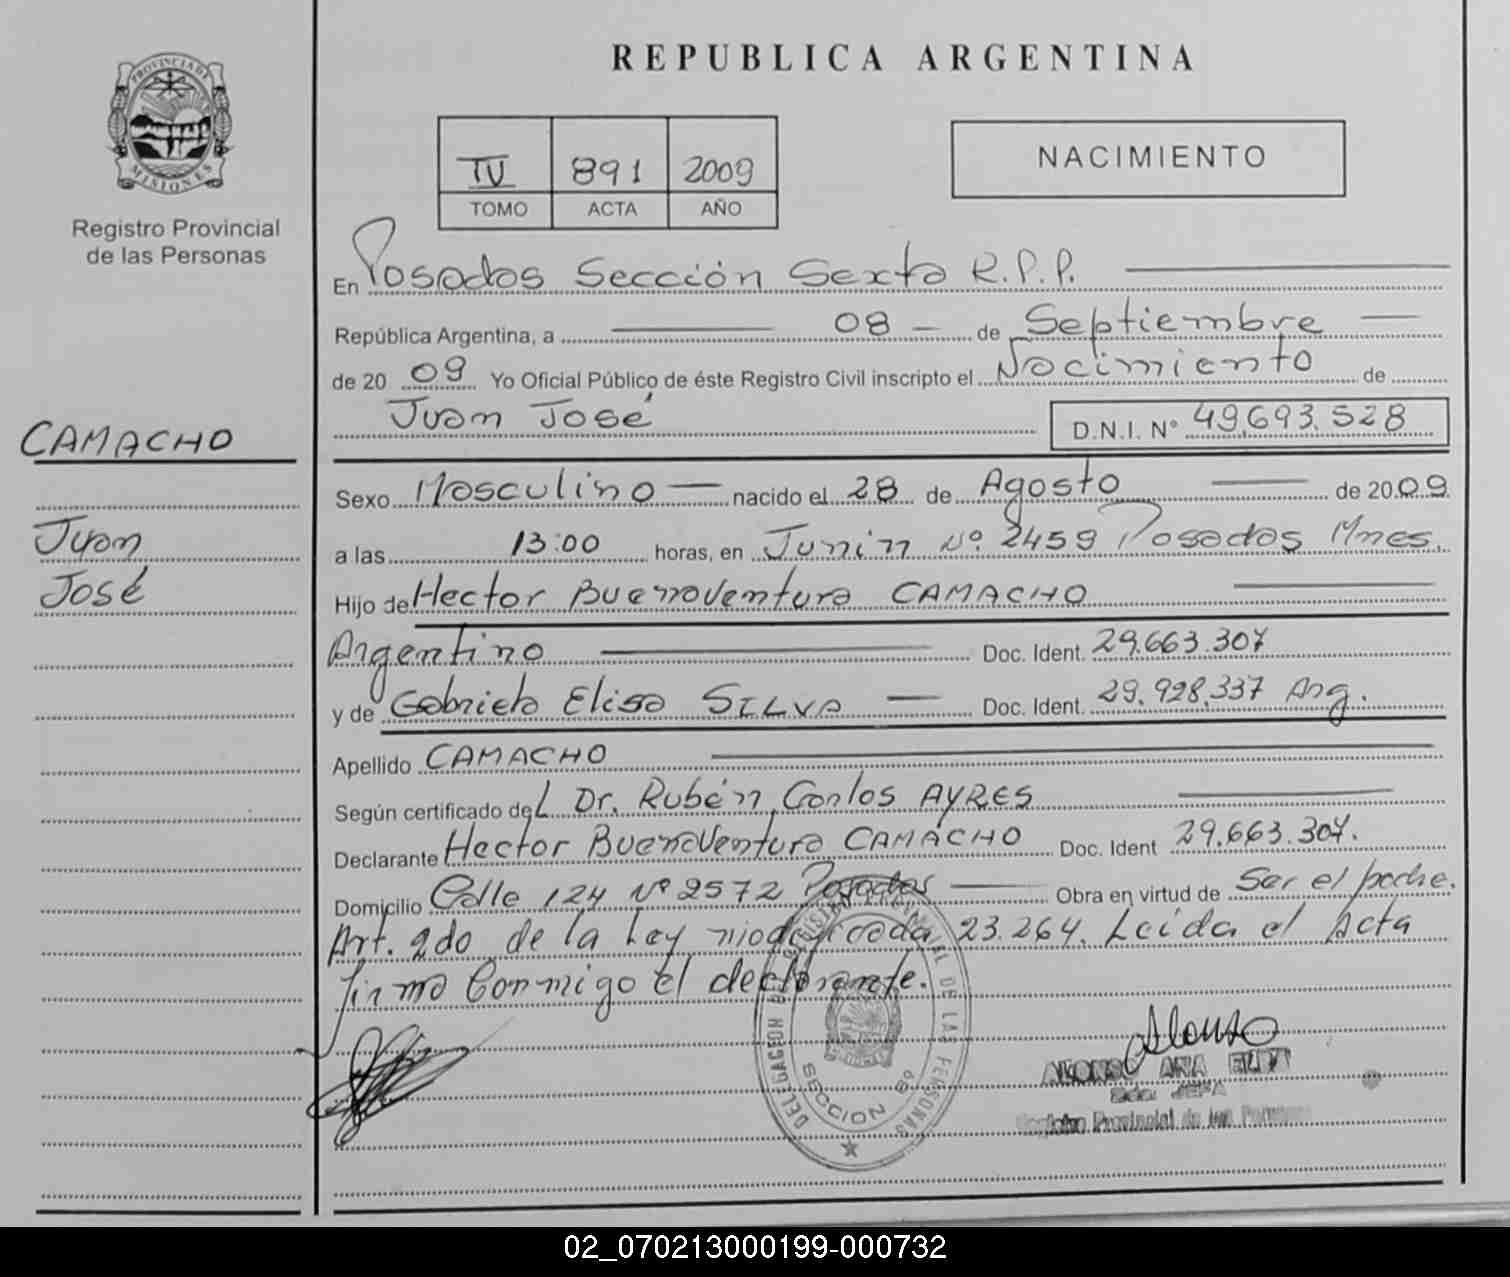 REPUBLICA ARGENTINA
PROVINCIA DE
MISIONES
Registro Provincial
de las Personas
IV 891 2009
TOMO ACTA AÑO
NACIMIENTO
En Posadas Sección Sexta R.P.P.
República Argentina, a 08 - de Septiembre
de 2009 Yo Oficial Público de éste Registro Civil inscripto el Nacimiento de
Juan José D.N.I. N° 49.693.528
CAMACHO
Juan
José
Sexo Masculino nacido el 28 de Agosto de 2009
a las 13:00 horas, en Junin Nº 2459 Posadas Mnes.
Hijo de Hector Buenaventura CAMACHO
Argentino Doc. Ident. 29.663.307
y de Gabriela Elisa SILVA Doc. Ident. 29.928.337 Arg.
Apellido CAMACHO
Según certificado del Dr. Rubén Carlos AYRES
Declarante Hector Buenaventura CAMACHO Doc. Ident 29.663.307.
Domicilio Calle 124 Nº 2572 Posadas Obra en virtud de Ser el padre.
Art. 2do de la Ley modificada 23.264. Leída el Acta
firma conmigo el declarante.
DELEGACION REGISTRO PROVINCIAL DE LAS PERSONAS
SECCION 6º
Alonso
ALONSO ANA
JEFA
Registro Provincial de las Personas
02_070213000199-000732